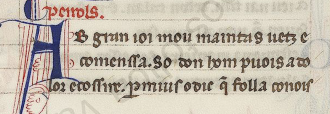 perrols.
AB gran ioi mou maintas uetz e
comensa. So don hom puois a do
lor e cossire. Per mius o die q̃ folla conois